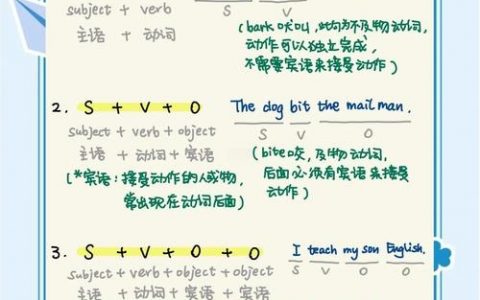 subject + verb
S V
主语 + 动词
(bark吠叫,此句为不及物动词,
动作可以独立完成,
不需要宾语来接受动作)
2. S + V + O
The dog bit the mailman.
subject + verb + object
S V O
主语 + 动词 + 宾语
(*宾语:接受动作的人或物,
常出现在动词后面)
(bite咬,及物动词,
后面必须有宾语来接受
动作)
3. S + V + O + O
I teach my son English.
subject + verb + object + object
S V O O
主语 + 动词 + 宾语 + 宾语